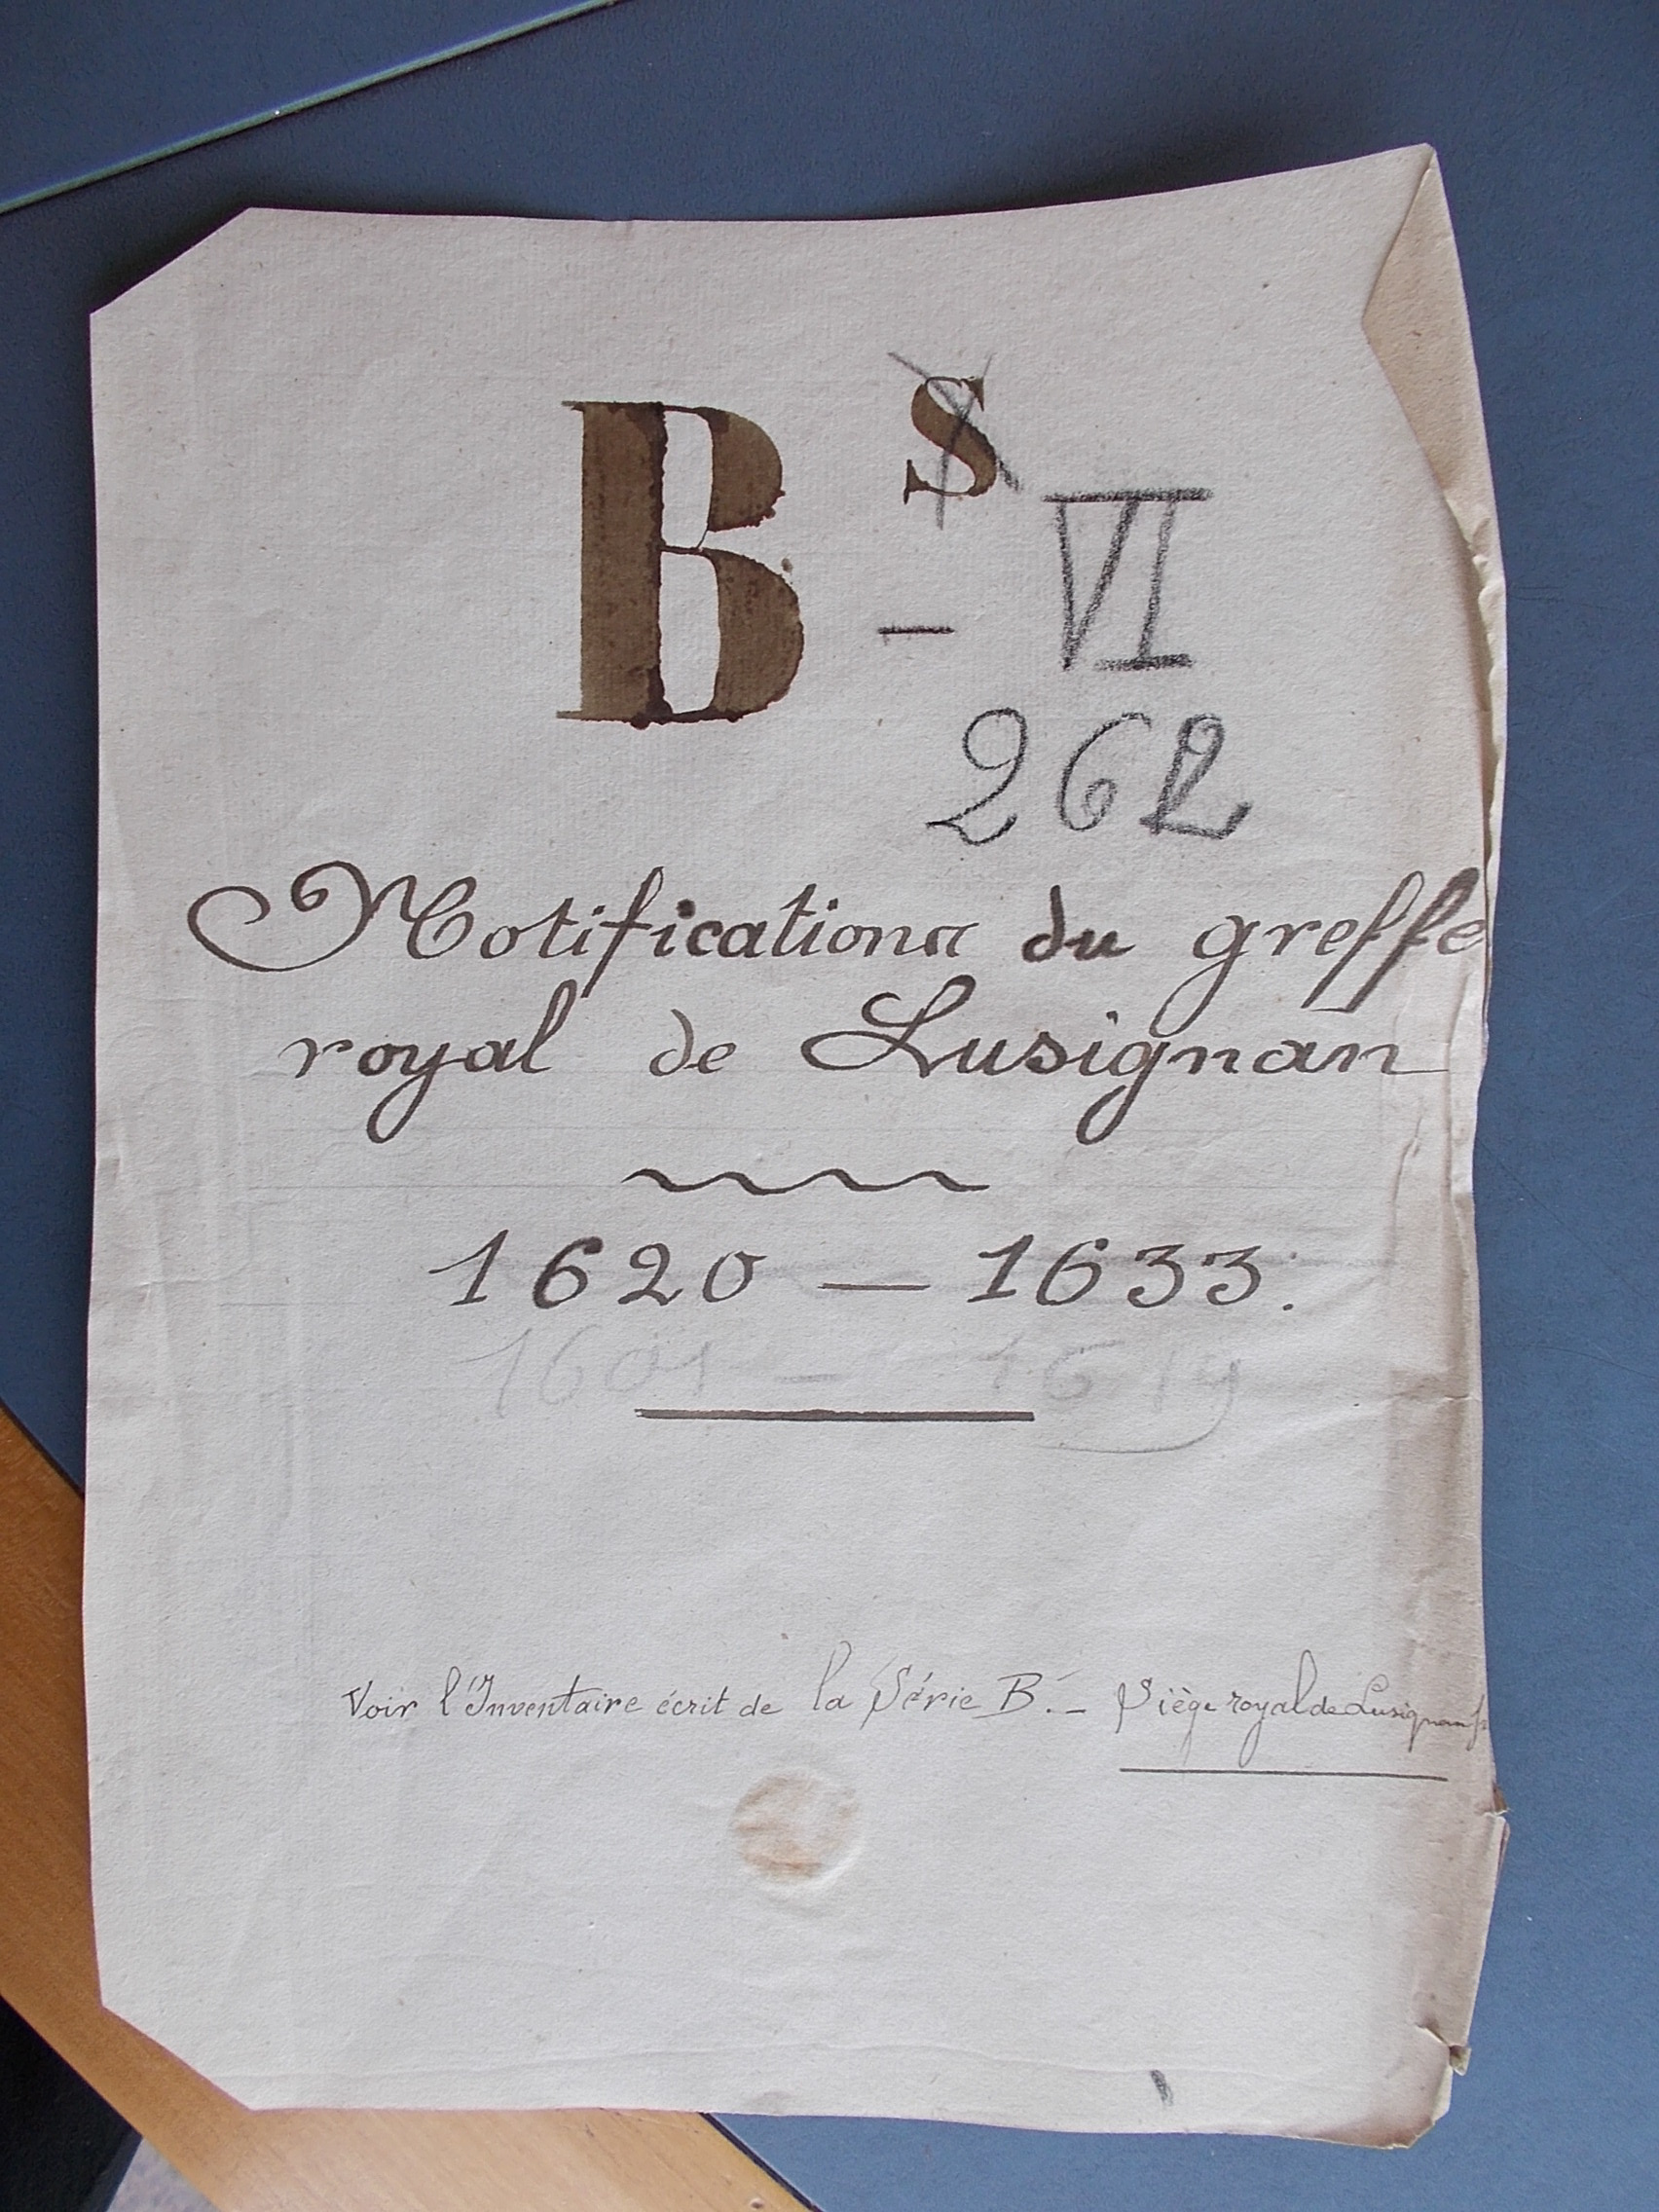 B S
- VI
262
Notifications du greffe
royal de Lusignan
1620 — 1633.
1601 - 1619
Voir l'Inventaire écrit de la Série B. - Siège royal de Lusignan